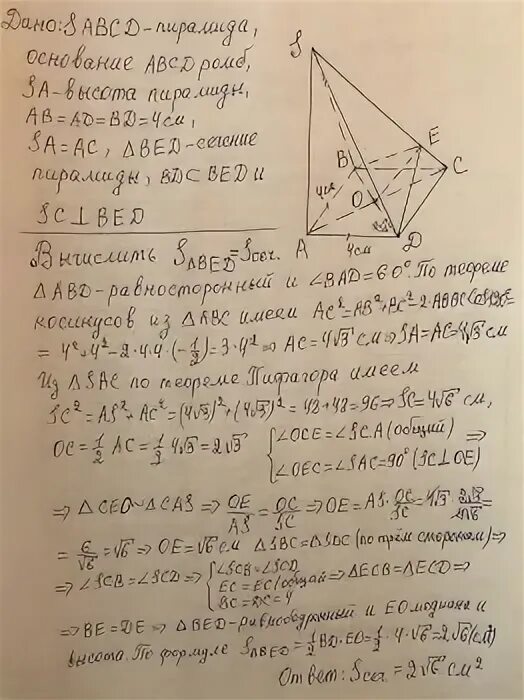 Дано: SABCD-пирамида,
основание ABCD ромб,
SA-высота пирамиды,
AB=AD=BD=4см,
SA=AC, △BED-сечение
пирамиды, BD⊂BED и
SC⊥BED
S
E
B
C
O
A
D
4см
4см
Вычислить S△BED=Sсеч.
△ABD-равносторонный и ∠BAD=60°. По теореме
косинусов из △ABC имеем AC²=AB²+BC²-2·ABBC
=4²+4²-2·4·4·(-1/2)=3·4² ⇒ AC=4√3 см ⇒ SA=AC=4√3 см
Из △SAC по теореме Пифагора имеем
SC²=AS²+AC²=(4√3)²+(4√3)²=48+48=96 ⇒ SC=4√6 см,
OC=1/2 AC=1/2 4√3=2√3 {∠OCE=∠SCA (общий) ⇒
∠OEC=∠SAC=90° (SC⊥OE)
⇒ △CEO~△CAS ⇒ OE/AS=OC/SC ⇒ OE=AS·OC/SC=4√3·2√3/4√6=
=6/√6=√6 ⇒ OE=√6 см △SBC=△SDC (по трём сторонам) ⇒
⇒ ∠SCB=∠SCD ⇒ {∠SCB=∠SCD
EC=EC (общий ⇒ △ECB=△ECD ⇒
BC=DC=4
⇒ BE=DE ⇒ △BED-равнобедренный и EO медиана и
высота. По формуле S△BED=1/2 BD·EO=1/2·4·√6=2√6 (см²)
Ответ: Sсеч=2√6 см²